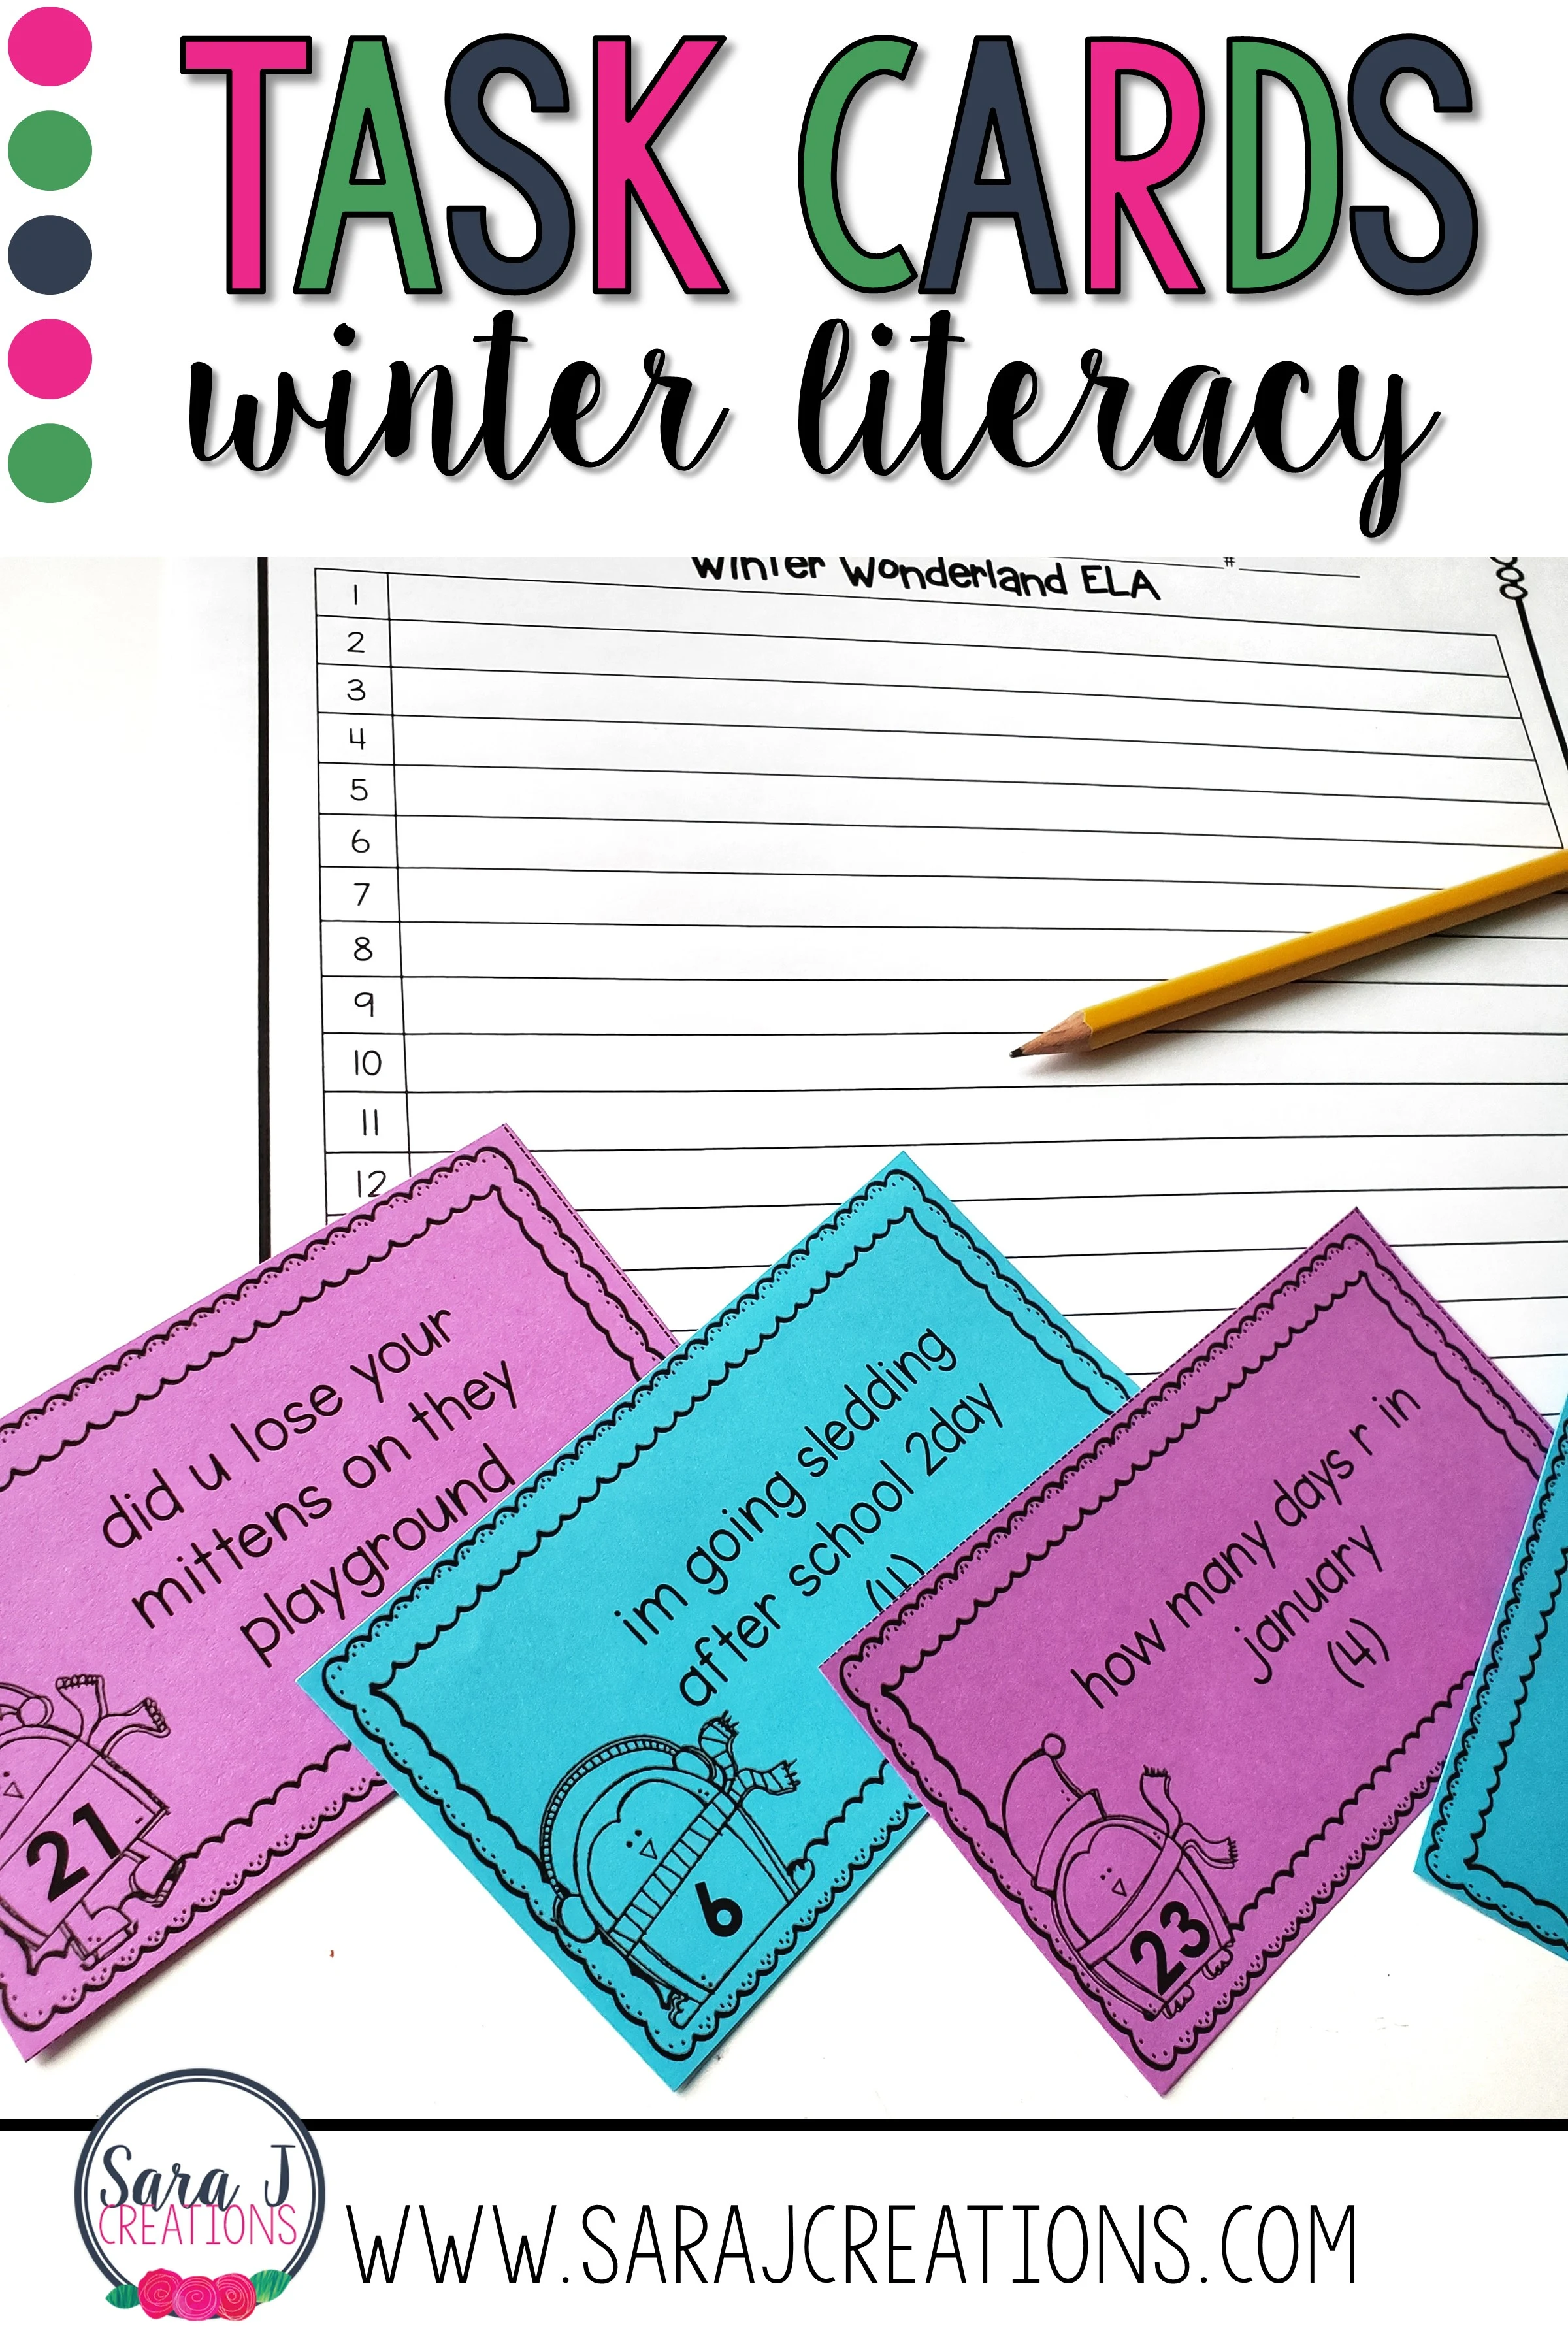 TASK CARDS
winter literacy
#
Winter Wonderland ELA
1
2
3
4
5
6
7
8
9
10
11
12
did u lose your
mittens on they
playground
21
im going sledding
after school 2day
6
how many days r in
january
(4)
23
Sara J
CREATIONS
WWW.SARAJCREATIONS.COM